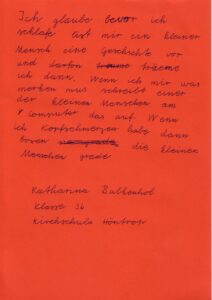 Ich glaube bevor ich
schlafe list mir ein kleiner
Mensch eine Geschichte vor
und darbon träeme
ich dann. Wenn ich mir was
merken mus schreibt einer
der kleinen Menschen am
Computer das auf. Wenn
ich Kopfschmerzen habe dann
boren die kleinen
Menschen grade
Katharina Balkenhol
Klasse 3b
Kirchschule Höntrop